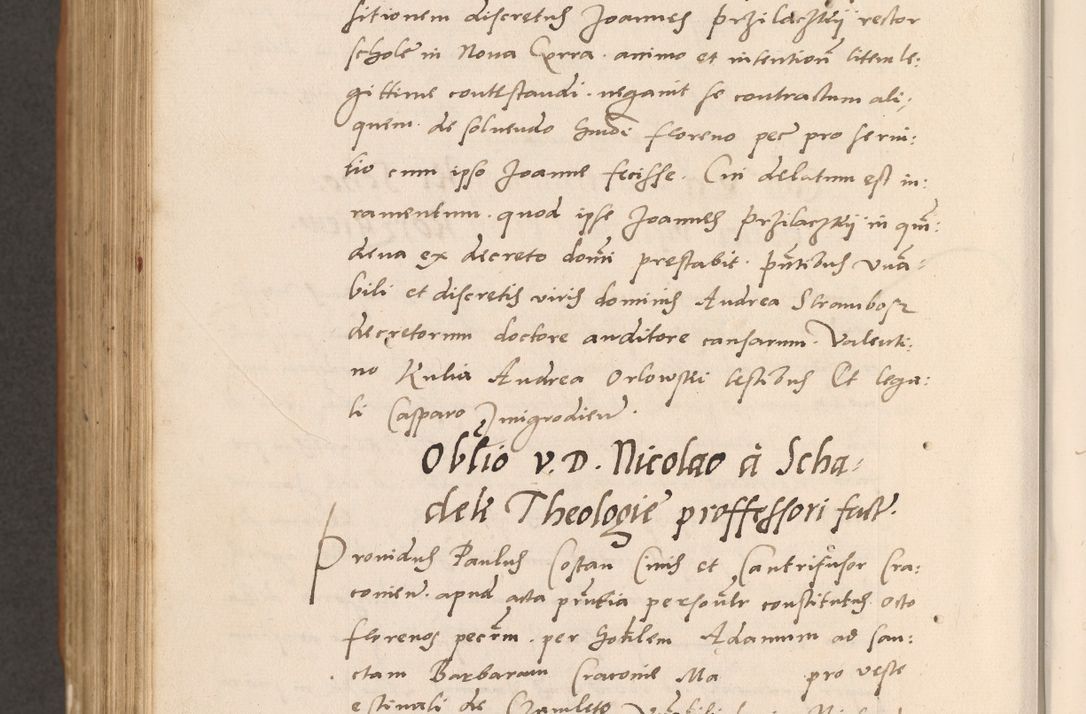 sitionem discretus Joannes Przilaczkij rector
scholę in Noua Cerra. animo et intentioñ litem le:
gittime contestandi. negauit se contractum ali:
quem de soluendo hmõi floreno pec̃ pro serui:
tio cum ipso Joanne fecisse. Cui delatum est iu:
ramentum. quod ipse Joannes Przilaczkij in qm̃:
dena ex decreto domĩ prestabit. pñtibus vña:
bili et discretis viris dominis Andrea Strambosz
decretorum doctore auditore causarum. Valenti:
no Kulia Andrea Orlowski testibus Et lega:
li Casparo Zmigrodień.
Oblio v. D. Nicolao à Scha:
dek Theologię proffessori fact.
Prouidus Paulus Costan Ciuis et Cantrifusor Cra:
couień. apud acta pñtia personlr constitutus octo
florenos pecrm. per Adamum ad san:
ctam Barbaram Cracouie Ma pro veste
estiuali de